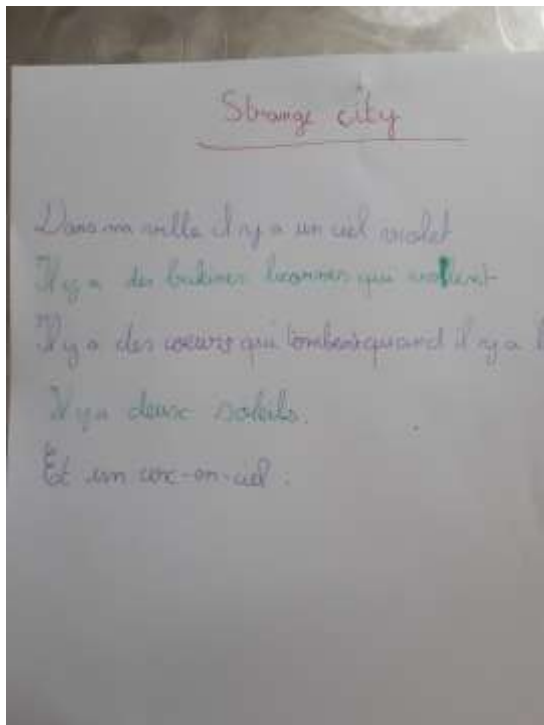 Strange city
Dans ma ville il y a un ciel violet
Il y a des baleines licornes qui volent
Il y a des coeurs qui tombent quand il y a
Il y a deux soleils.
Et un arc-en-ciel.